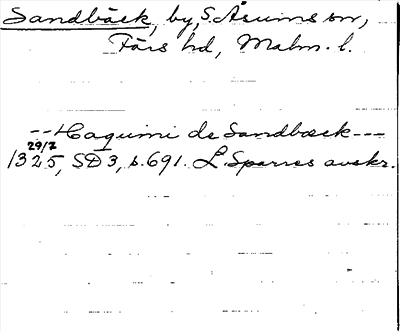 Sandbäck, by, S. Åsums sn,
Färs hd, Malm. l.
-- Haquini de Sandbæck ---
29/7
1325, SD 3, s. 691. L. Sparres avskr.